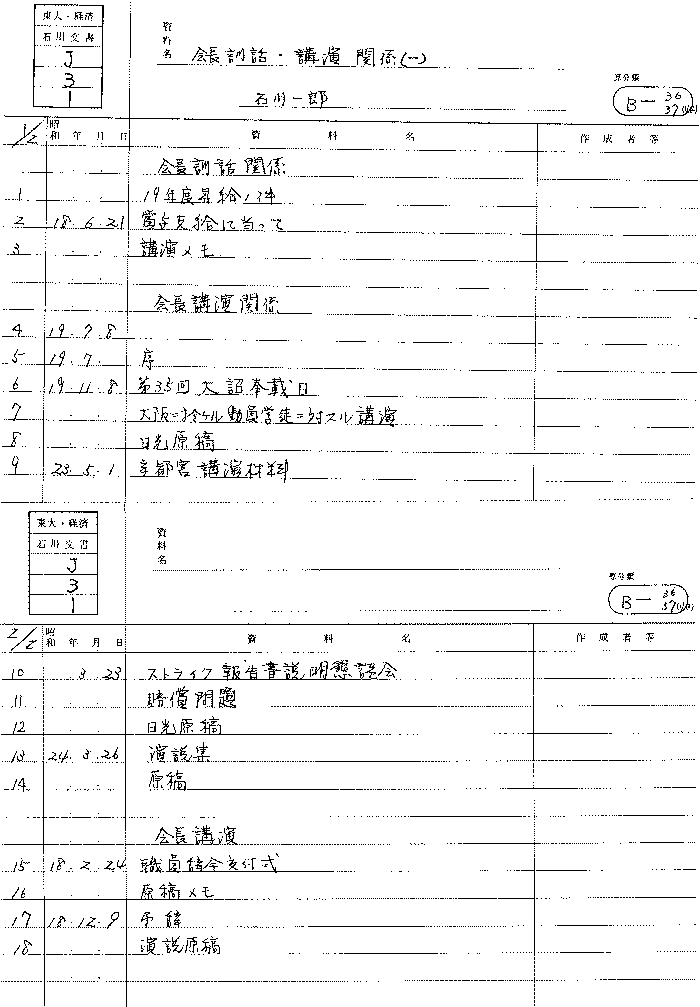 東大・経済
石川文書
J
3
1
資料名
会長訓話・講演関係(一)
石川一郎
原分類
B－36
37
1/2
昭和 年 月 日 資料名 作成者等
会長訓話関係
1 19年度昇給
2 18.6.21 賞与支給に当って
3 講演メモ
会長講演関係
4 19.7.8
5 19.7. 序
6 19.11.8 第35回大詔奉戴日
7 大阪ニ於ケル動員学徒ニ対スル講演
8 日光原稿
9 23.5.1 講演材料
東大・経済
石川文書
J
3
1
資料名
原分類
B－36
37
2/2
昭和 年 月 日 資料名 作成者等
10 3.23 ストライク報告書説明懇談会
11 賠償問題
12 日光原稿
13 24.3.26 演説集
14 原稿
会長講演
15 18.2.24 職員
16 原稿メモ
17 18.12.9
18 演説原稿